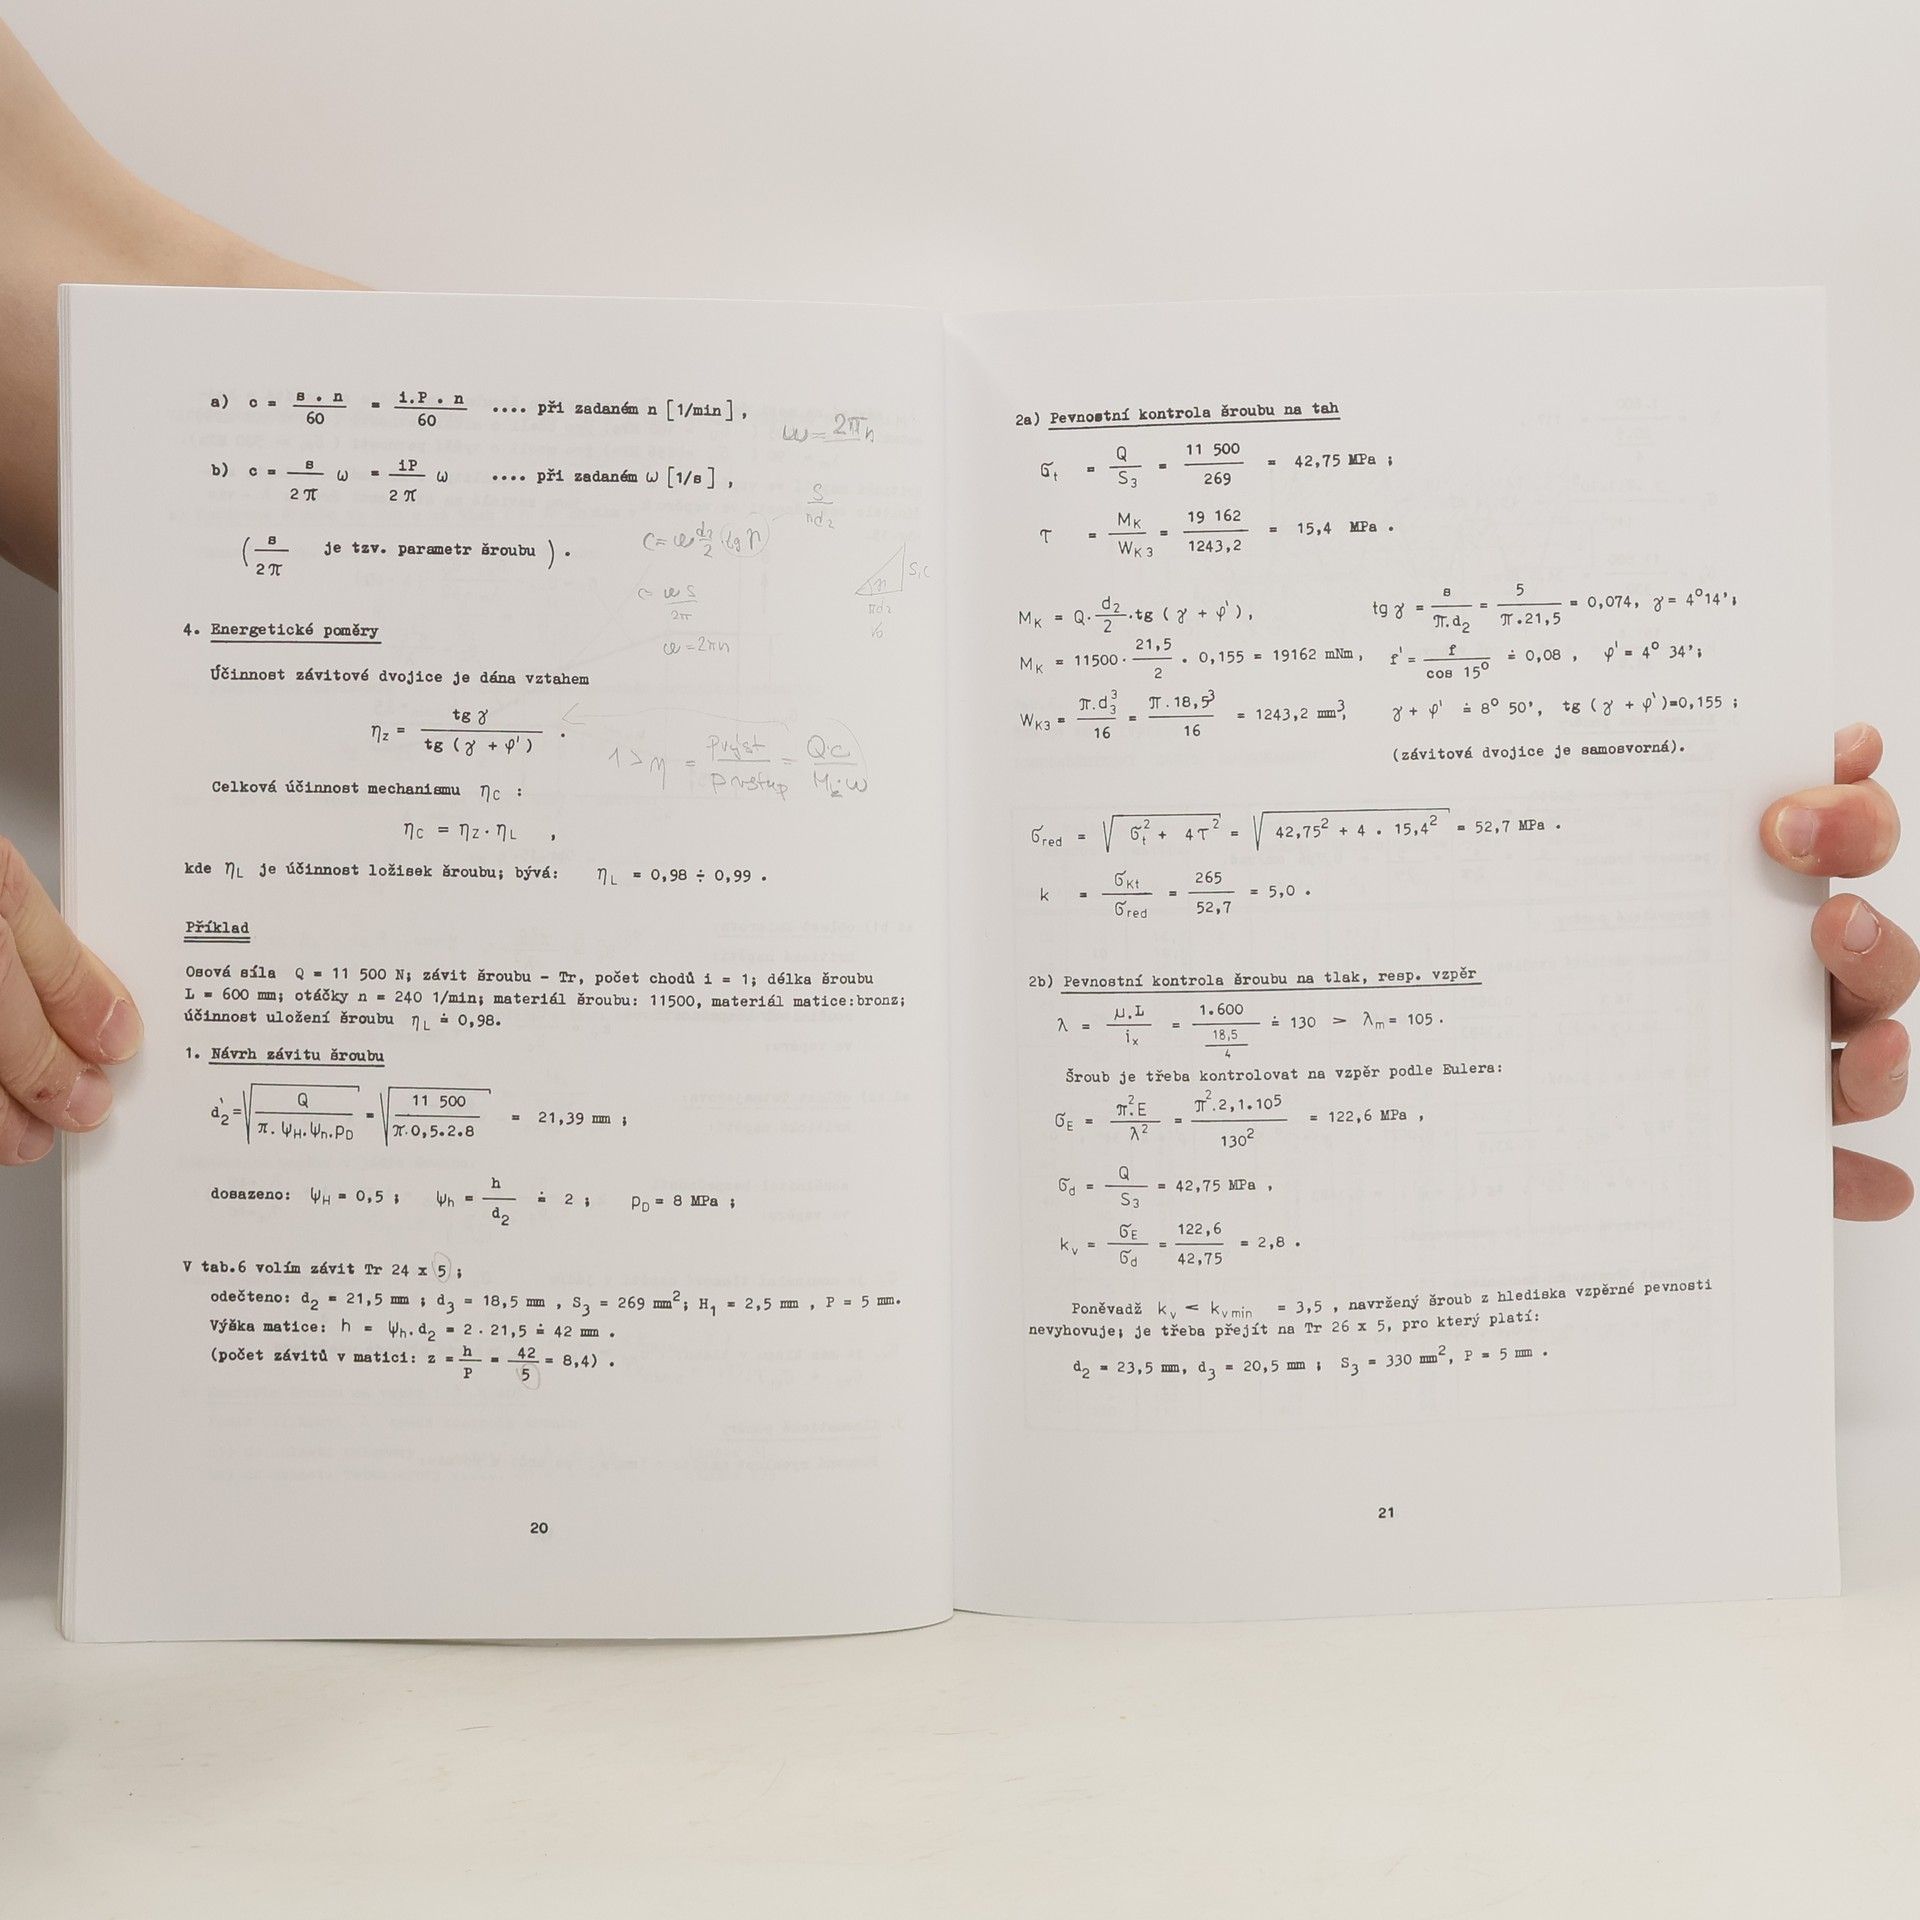 a) c = s . n / 60 = i.P . n / 60 .... při zadaném n [1/min] ,
ω = 2πn
b) c = s / 2π ω = iP / 2π ω .... při zadaném ω [1/s] ,
s / πd2
( s / 2π je tzv. parametr šroubu ) .
c = ω d2/2 (tg γ)
c = ω s / 2π
ω = 2πn
4. Energetické poměry
Účinnost závitové dvojice je dána vztahem
ηz = tg γ / tg ( γ + φ' ) .
1 > η = Pvýst / Pvstup = Q.c / Mk.ω
Celková účinnost mechanismu ηC :
ηC = ηZ . ηL ,
kde ηL je účinnost ložisek šroubu; bývá: ηL = 0,98 ÷ 0,99 .
Příklad
Osová síla Q = 11 500 N; závit šroubu - Tr, počet chodů i = 1; délka šroubu
L = 600 mm; otáčky n = 240 1/min; materiál šroubu: 11500, materiál matice:bronz;
účinnost uložení šroubu ηL ≐ 0,98.
1. Návrh závitu šroubu
d2' = √( Q / π . ψH . ψh . pD ) = √( 11 500 / π.0,5.2.8 ) = 21,39 mm ;
dosazeno: ψH = 0,5 ; ψh = h / d2 ≐ 2 ; pD = 8 MPa ;
V tab.6 volím závit Tr 24 x 5 ;
odečteno: d2 = 21,5 mm ; d3 = 18,5 mm , S3 = 269 mm²; H1 = 2,5 mm , P = 5 mm.
Výška matice: h = ψh.d2 = 2 . 21,5 ≐ 42 mm .
(počet závitů v matici: z = h / P = 42 / 5 = 8,4) .
20
2a) Pevnostní kontrola šroubu na tah
σt = Q / S3 = 11 500 / 269 = 42,75 MPa ;
τ = MK / WK3 = 19 162 / 1243,2 = 15,4 MPa .
MK = Q . d2 / 2 . tg ( γ + φ' ) , tg γ = s / π.d2 = 5 / π.21,5 = 0,074, γ = 4°14' ;
MK = 11500 . 21,5 / 2 . 0,155 = 19162 mNm , f' = f / cos 15° ≐ 0,08 , φ' = 4° 34' ;
WK3 = π.d3³ / 16 = π.18,5³ / 16 = 1243,2 mm³, γ + φ' ≐ 8° 50', tg ( γ + φ' )=0,155 ;
(závitová dvojice je samosvorná).
σred = √( σt² + 4τ² ) = √( 42,75² + 4 . 15,4² ) = 52,7 MPa .
k = σKt / σred = 265 / 52,7 = 5,0 .
2b) Pevnostní kontrola šroubu na tlak, resp. vzpěr
λ = μ.L / ix = 1.600 / 18,5/4 ≐ 130 > λm = 105 .
Šroub je třeba kontrolovat na vzpěr podle Eulera:
σE = π².E / λ² = π².2,1.105 / 130² = 122,6 MPa ,
σd = Q / S3 = 42,75 MPa ,
kv = σE / σd = 122,6 / 42,75 = 2,8 .
Poněvadž kv < kv min = 3,5 , navržený šroub z hlediska vzpěrné pevnosti
nevyhovuje; je třeba přejít na Tr 26 x 5, pro který platí:
d2 = 23,5 mm, d3 = 20,5 mm ; S3 = 330 mm², P = 5 mm .
21